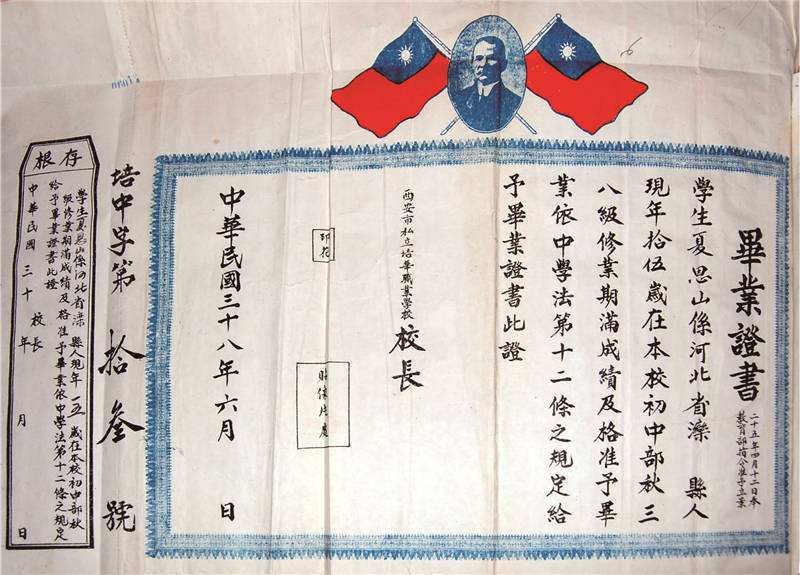 畢業證書
二十五年四月十三日本
教育部指令准予立案
學生夏思山係河北省灤 縣人
現年拾伍歲在本校初中部秋三
八級修業期滿成績及格准予畢
業依中學法第十二條之規定給
予畢業證書此證
西安市私立培華職業學校 校長
印花
貼像片處
中華民國三十八年六月 日
培中字第 拾叁 號
存根
學生夏思山係河北省灤 縣人現年 一五 歲在本校初中部秋
級修業期滿成績及格准予畢業依中學法第十二條之規定
給予畢業證書此證
校長
中華民國 三十 年 月 日